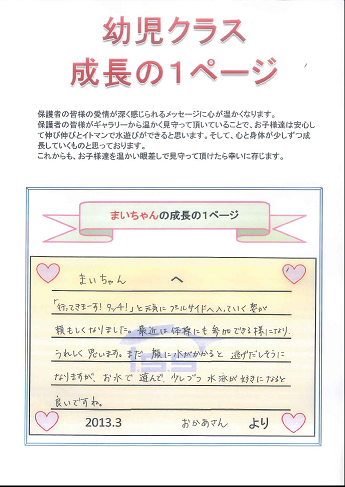 幼児クラス
成長の1ページ
保護者の皆様の愛情が深く感じられるメッセージに心が温かくなります。
保護者の皆様がギャラリーから温かく見守って頂いていることで、お子様達は安心し
て伸び伸びとイトマンで水遊びができると思います。そして、心と身体が少しずつ成
長していくものと思っております。
これからも、お子様達を温かい眼差しで見守って頂けたら幸いに存じます。
まいちゃんの成長の1ページ
まいちゃん へ
「行ってきまーす！タッチ！」と元気にプールサイドへ入っていく姿が
頼もしくなりました。最近は体操にも参加できる様になり、
うれしく思います。まだ顔に水がかかると逃げだしそうに
なりますが、お水で遊んで、少しづつ水泳が好きになると
良いですね。
2013.3 おかあさん より